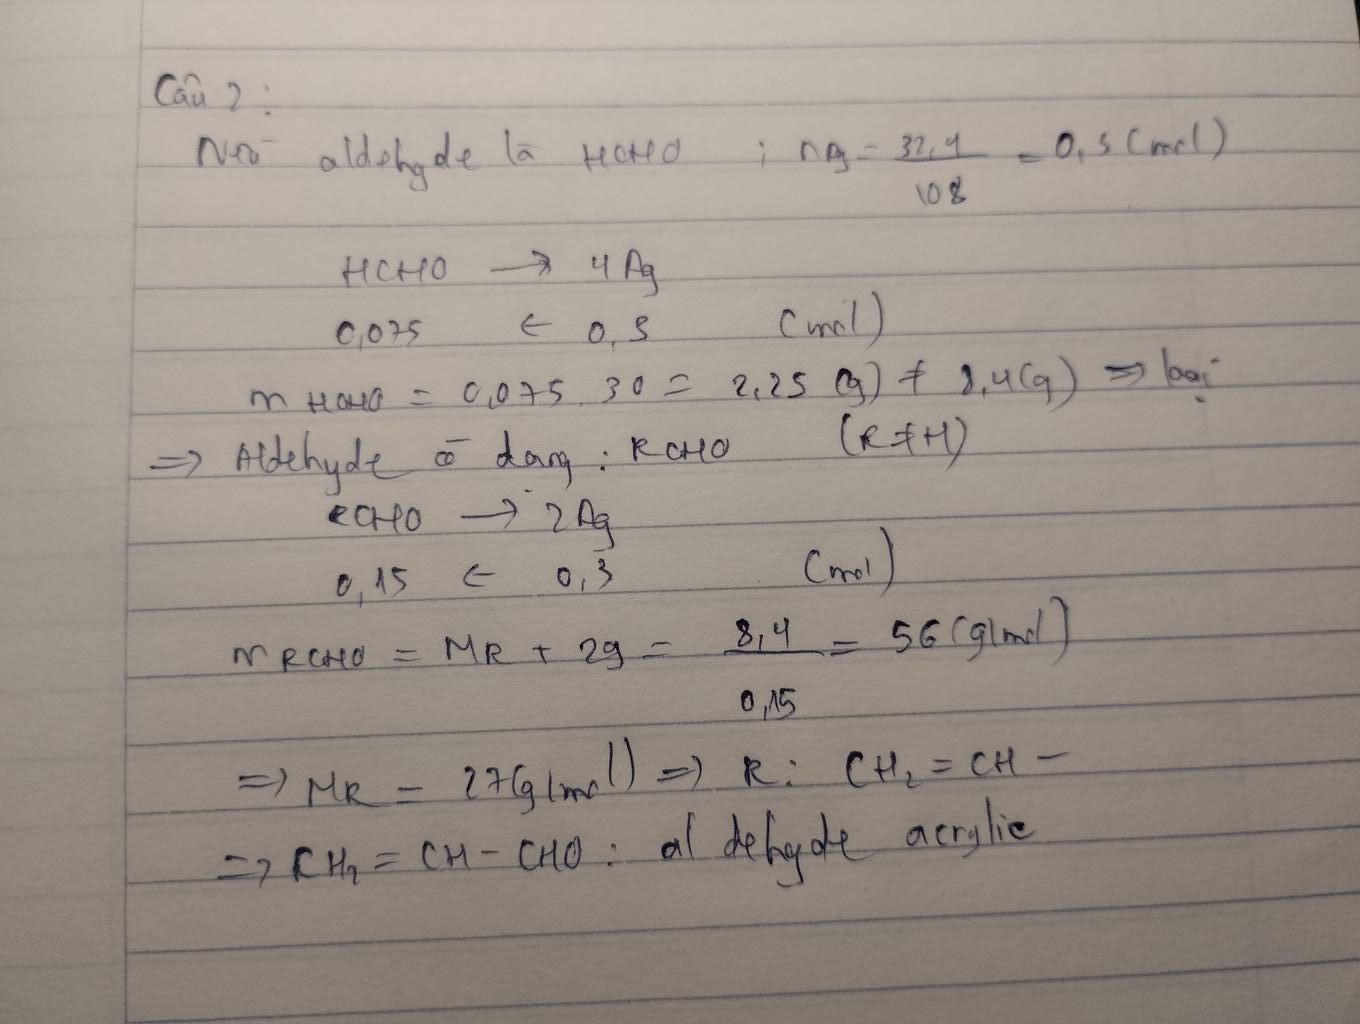 Câu 2:
Nếu aldehyde là HCHO ; nAg = 32,4 / 108 = 0,3 (mol)
HCHO → 4 Ag
0,075 ← 0,3 (mol)
m HCHO = 0,075. 30 = 2,25 (g) ≠ 8,4(g) => loại
=> Aldehyde có dạng : RCHO (R≠H)
RCHO → 2 Ag
0,15 ← 0,3 (mol)
M RCHO = MR + 29 = 8,4 / 0,15 = 56 (g/mol)
=> MR = 27(g/mol) => R: CH₂ = CH –
=> CH₂ = CH – CHO : aldehyde acrylic